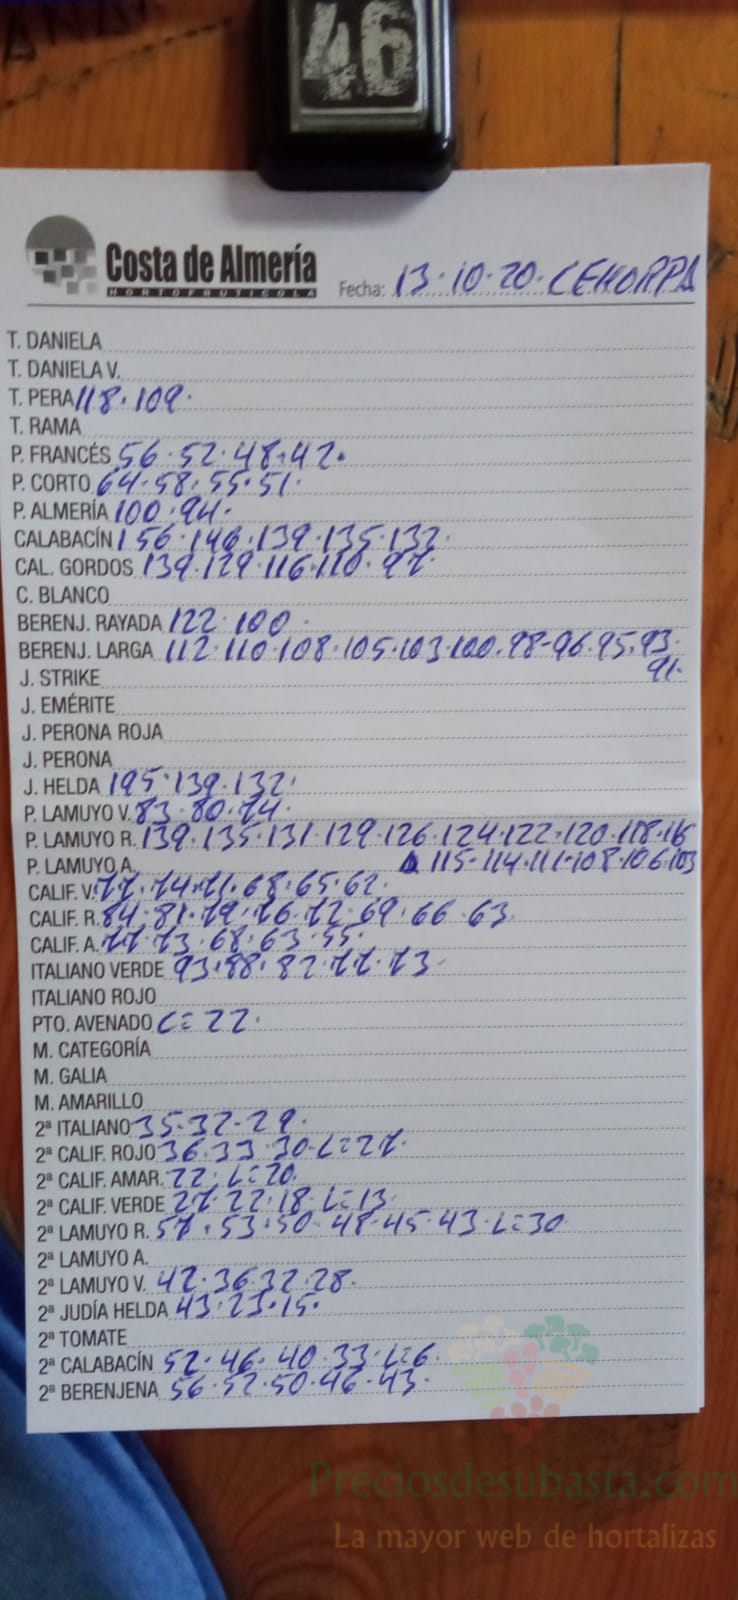 46
Costa de Almería
HORTOFRUTICOLA
Fecha: 13·10·20· CEHORPA
T. DANIELA
T. DANIELA V.
T. PERA 118·109·
T. RAMA
P. FRANCÉS 56·52·48·42·
P. CORTO 64·58·55·51·
P. ALMERÍA 100·94·
CALABACÍN 156·146·139·135·132·
CAL. GORDOS 139·129·116·110·97·
C. BLANCO
BERENJ. RAYADA 122·100·
BERENJ. LARGA 112·110·108·105·103·100·98-96·95·93·
91·
J. STRIKE
J. EMÉRITE
J. PERONA ROJA
J. PERONA
J. HELDA 195·139·132·
P. LAMUYO V. 83·80·74·
P. LAMUYO R. 139·135·131·129·126·124·122·120·118·116
P. LAMUYO A. 115-114·111·108·106·103
CALIF. V. 77·74·71·68·65·62·
CALIF. R. 84·81·79·76·72·69·66·63
CALIF. A. 77·73·68·63·55·
ITALIANO VERDE 93·88·82·77·73·
ITALIANO ROJO
PTO. AVENADO C=22·
M. CATEGORÍA
M. GALIA
M. AMARILLO
2ª ITALIANO 35·32·29·
2ª CALIF. ROJO 36·33·30·L=27·
2ª CALIF. AMAR. 22·L=20·
2ª CALIF. VERDE 27·22·18·L=13·
2ª LAMUYO R. 57·53·50·48·45·43·L=30
2ª LAMUYO A.
2ª LAMUYO V. 42·36·32·28·
2ª JUDÍA HELDA 43·23·15·
2ª TOMATE
2ª CALABACÍN 52·46·40·33·L=6·
2ª BERENJENA 56·52·50·46·43·
Preciosdesubasta.com
La mayor web de hortalizas